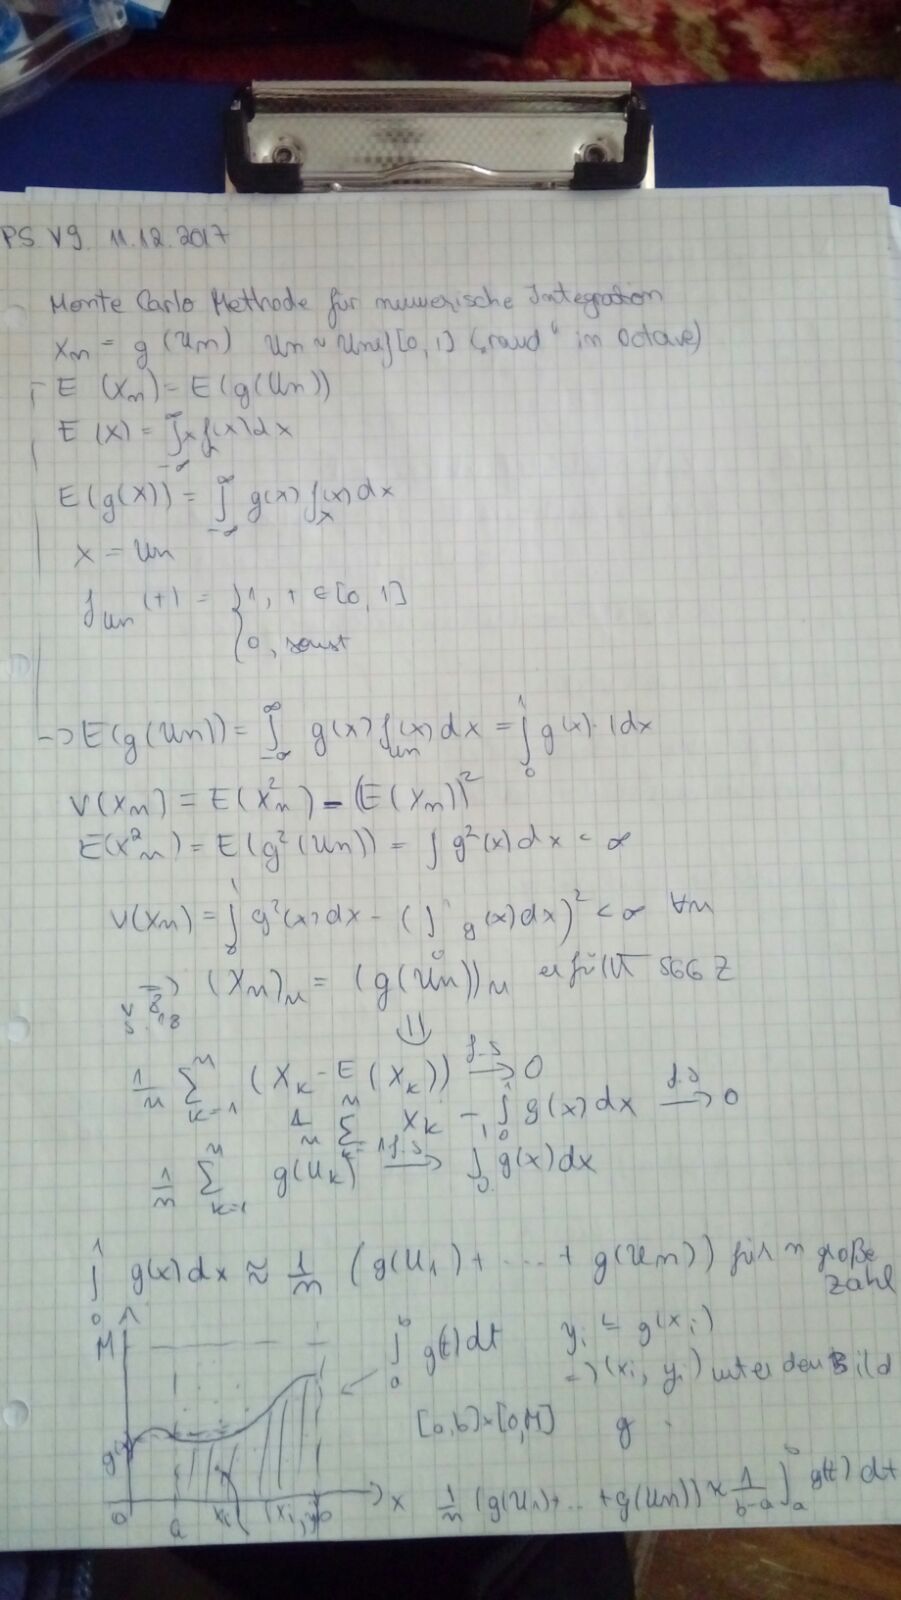 PS V9 11.12.2017
Monte Carlo Methode für numerische Integration
Xn = g(Un) Un ~ Unif[0,1] („rand“ in Octave)
E (Xn) = E(g(Un))
E (X) = ∫_{-∞}^{∞} x f_x(x) dx
E(g(X)) = ∫_{-∞}^{∞} g(x) f_X(x) dx
X = Un
f_{Un}(t) = { 1, t ∈ [0, 1]
0, sonst
-> E(g(Un)) = ∫_{-∞}^{∞} g(x) f_{Un}(x) dx = ∫_0^1 g(x)·1dx
V(Xn) = E(Xn²) - (E(Xn))²
E(Xn²) = E(g²(Un)) = ∫ g²(x) dx < ∞
V(Xn) = ∫_0^1 g²(x) dx - (∫_0^1 g(x) dx)² < ∞ ∀n
=> (Xn)n = (g(Un))n erfüllt SGGZ
1/n Σ_{k=1}^n (Xk - E(Xk)) —f.s→ 0
1/n Σ_{k=1}^n Xk - ∫_0^1 g(x) dx —f.s→ 0
1/n Σ_{k=1}^n g(Uk) —f.s→ ∫_0^1 g(x) dx
∫_0^1 g(x) dx ≈ 1/n (g(U1) + ... + g(Un)) für n große
Zahl
M
∫_a^b g(t) dt yi ≤ g(xi)
=> (xi, yi) unter dem Bild
[a,b]×[0,M] g
0 a xi (xi, yi) b x
1/n (g(U1)+..+g(Un)) ≈ 1/(b-a) ∫_a^b g(t) dt